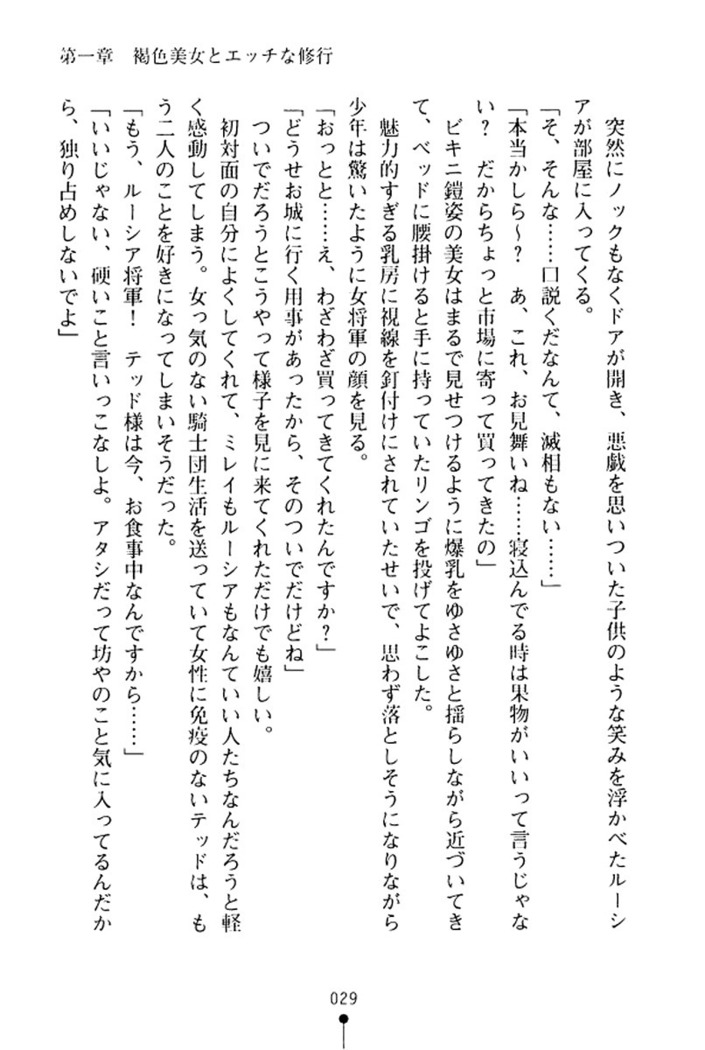 第一章　褐色美女とエッチな修行
　突然にノックもなくドアが開き、悪戯を思いついた子供のような笑みを浮かべたルーシ
アが部屋に入ってくる。
「そ、そんな……口説くだなんて、滅相もない……」
「本当かしら～？　あ、これ、お見舞いね……寝込んでる時は果物がいいって言うじゃな
い？　だからちょっと市場に寄って買ってきたの」
　ビキニ鎧姿の美女はまるで見せつけるように爆乳をゆさゆさと揺らしながら近づいてき
て、ベッドに腰掛けると手に持っていたリンゴを投げてよこした。
　魅力的すぎる乳房に視線を釘付けにされていたせいで、思わず落としそうになりながら
少年は驚いたように女将軍の顔を見る。
「おっとと……え、わざわざ買ってきてくれたんですか？」
「どうせお城に行く用事があったから、そのついでだけどね」
　ついでだろうとこうやって様子を見に来てくれただけでも嬉しい。
　初対面の自分によくしてくれて、ミレイもルーシアもなんていい人たちなんだろうと軽
く感動してしまう。女っ気のない騎士団生活を送っていて女性に免疫のないテッドは、も
う二人のことを好きになってしまいそうだった。
「もう、ルーシア将軍！　テッド様は今、お食事中なんですから……」
「いいじゃない、硬いこと言いっこなしよ。アタシだって坊やのこと気に入ってるんだか
ら、独り占めしないでよ」
029